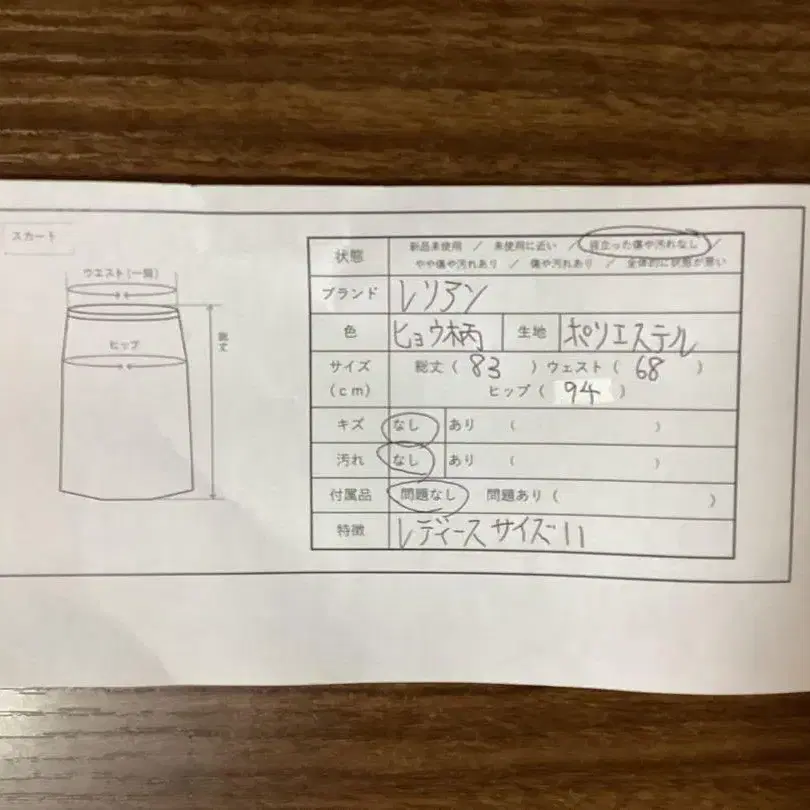 スカート
ウエスト(一周)
ヒップ
総丈
状態 新品未使用 / 未使用に近い / 目立った傷や汚れなし /
やや傷や汚れあり / 傷や汚れあり / 全体的に状態が悪い
ブランド レリアン
色 ヒョウ柄 生地 ポリエステル
サイズ 総丈( 83 ) ウェスト( 68 )
(cm) ヒップ( 94 )
キズ なし あり ( )
汚れ なし あり ( )
付属品 問題なし 問題あり( )
特徴 レディースサイズ11